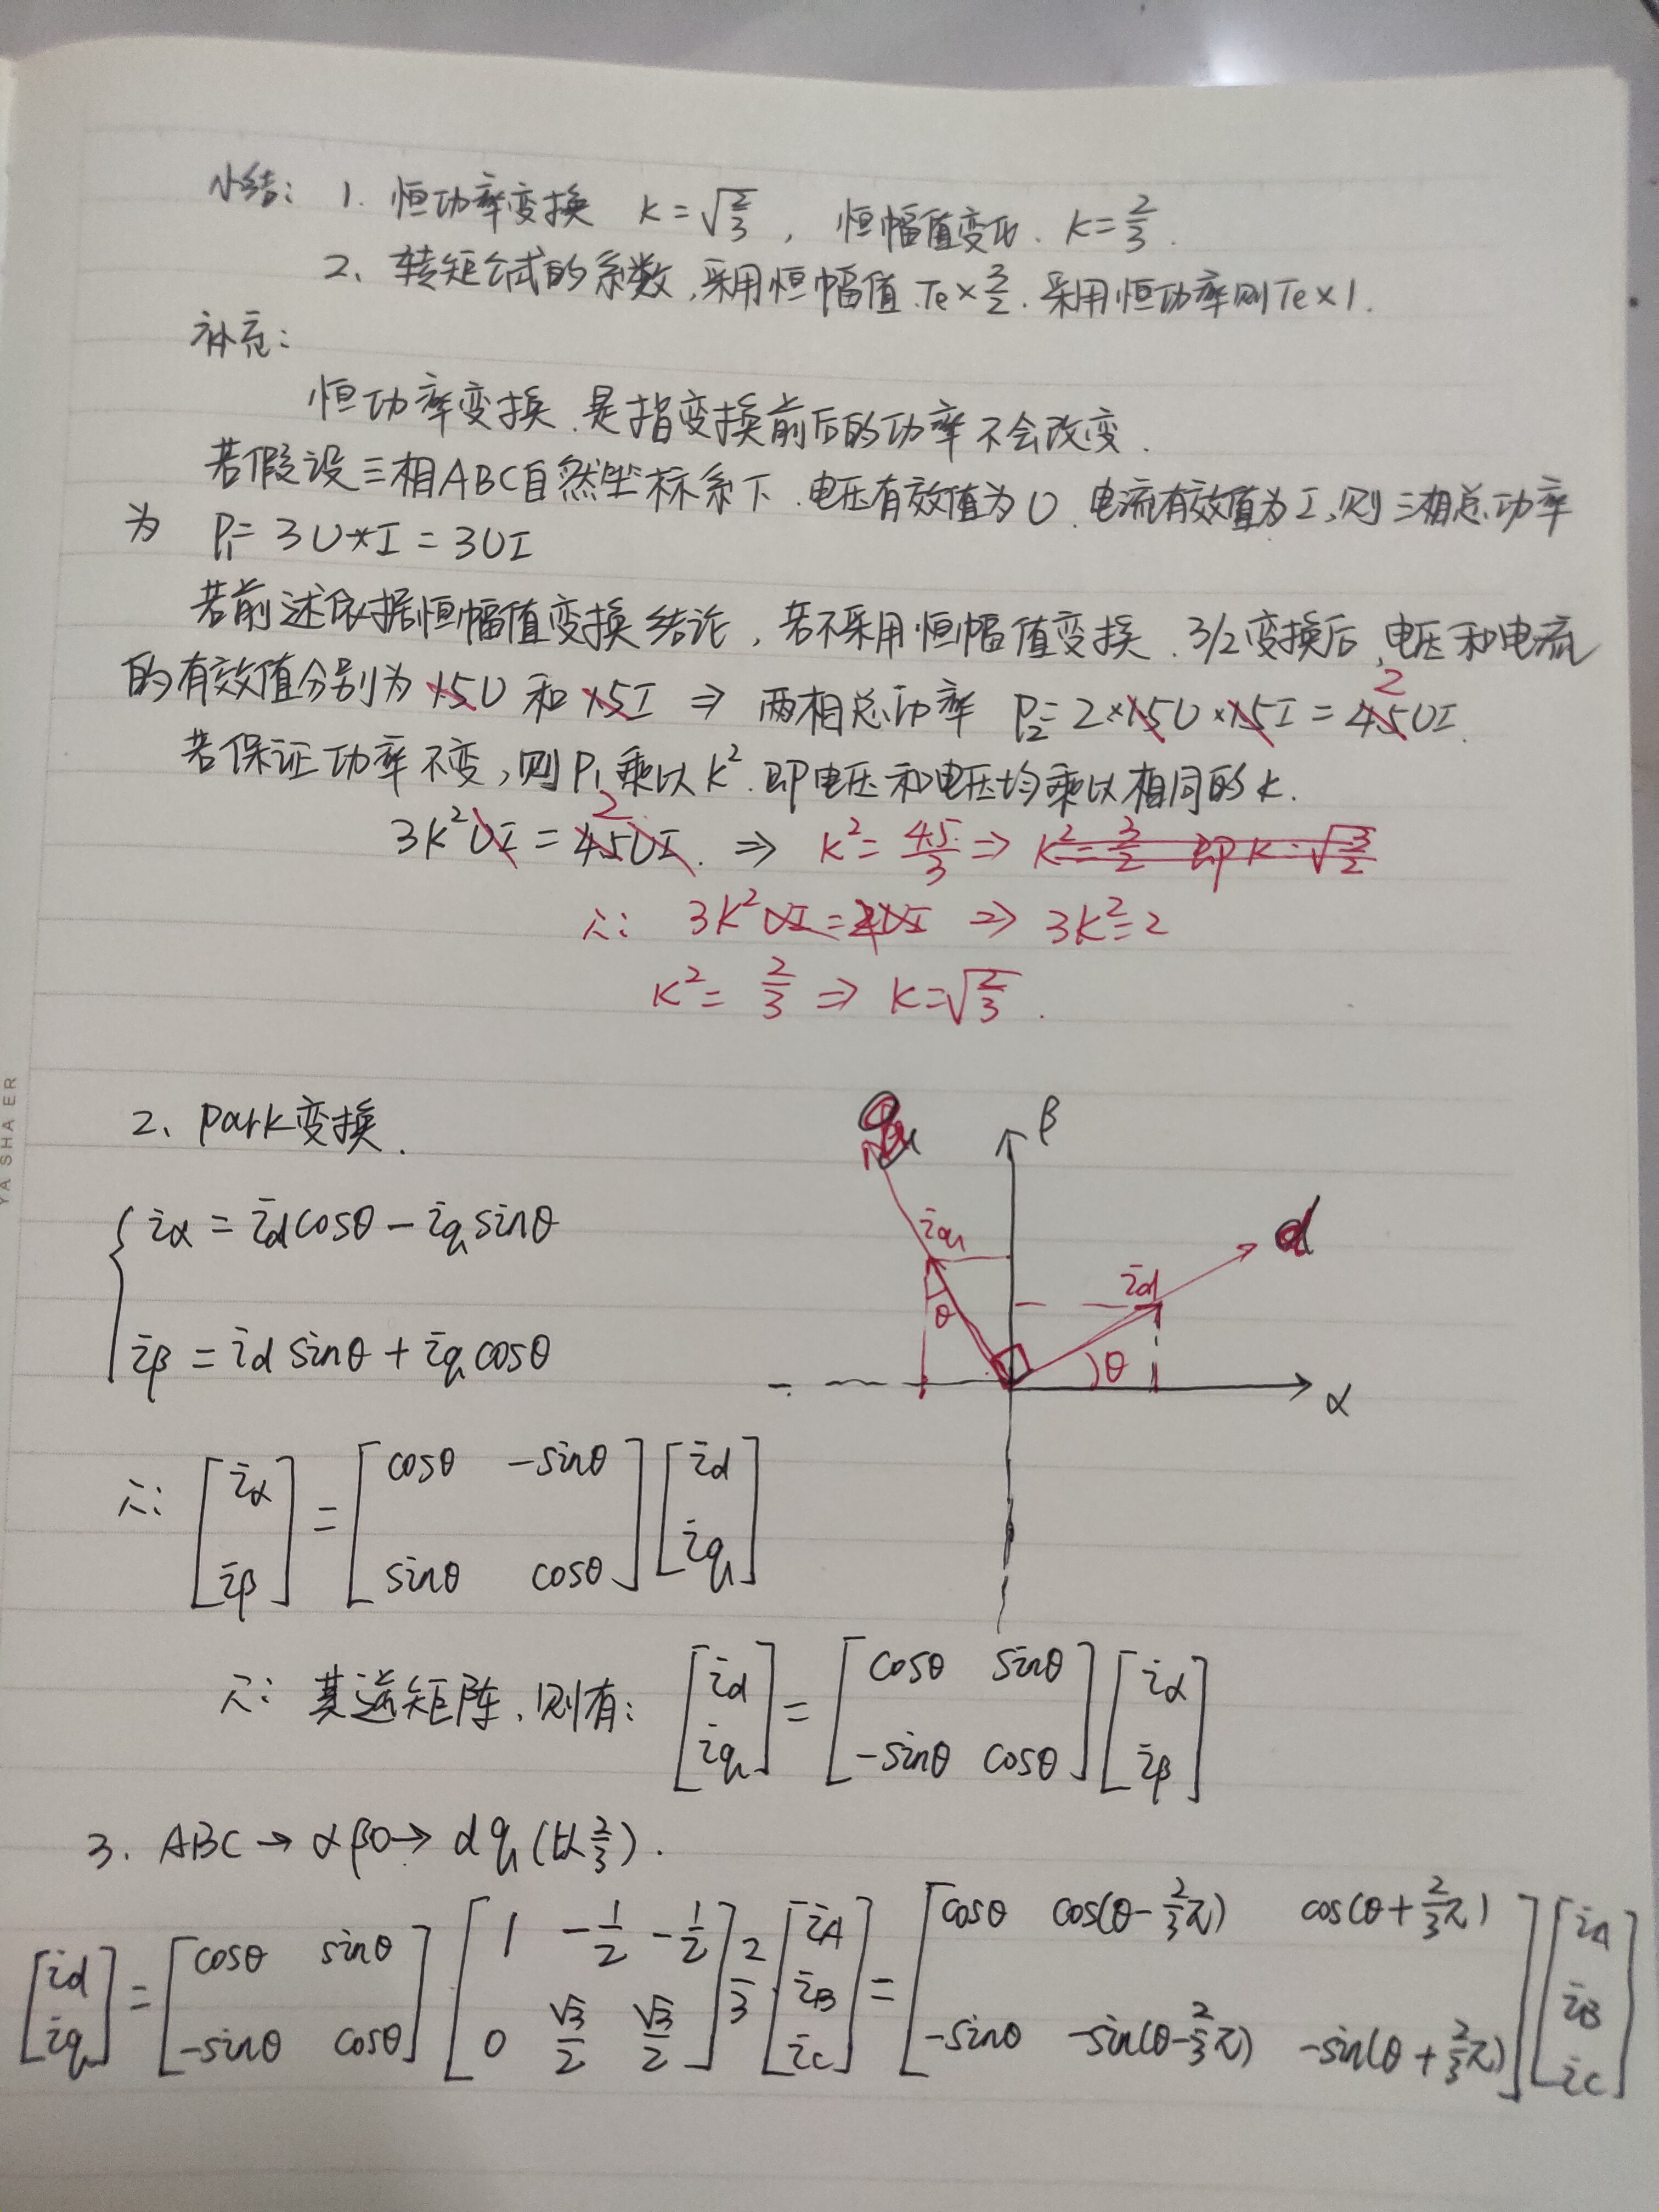 小结: 1. 恒功率变换 K=√(2/3), 恒幅值变化. K=2/3.
2、转矩公式的系数,采用恒幅值.Te×3/2.采用恒功率则Te×1.
补充:
恒功率变换.是指变换前后的功率不会改变.
若假设三相ABC自然坐标系下.电压有效值为U.电流有效值为I,则三相总功率
为 P₁=3U*I=3UI
若前述依据恒幅值变换结论,若不采用恒幅值变换.3/2变换后,电压和电流
的有效值分别为1.5U和1.5I⇒两相总功率 P₂=2×1.5U×1.5I=4.5UI.
2
若保证功率不变,则P₁乘以K².即电压和电压均乘以相同的K.
3K²UI=4.5UI.⇒K²=4.5/3⇒K²=3/2 即K=√(3/2)
2
∴ 3K²UI=2UI⇒3K²=2
K²=2/3⇒K=√(2/3).
2、Park变换.
{ iα=id cosθ-iq sinθ
iβ=id sinθ+iq cosθ
q β
iq
d
id
θ
θ
α
∴ [iα iβ]=[cosθ -sinθ sinθ cosθ][id iq]
∴ 其逆矩阵,则有: [id iq]=[cosθ sinθ -sinθ cosθ][iα iβ]
3. ABC→αβ0→dq(以2/3).
[id iq]=[cosθ sinθ -sinθ cosθ]·[1 -1/2 -1/2 0 √3/2 √3/2]2/3·[iA iB iC]=[cosθ cos(θ-2/3π) cos(θ+2/3π) -sinθ -sin(θ-2/3π) -sin(θ+2/3π)][iA iB iC]
YASHAER